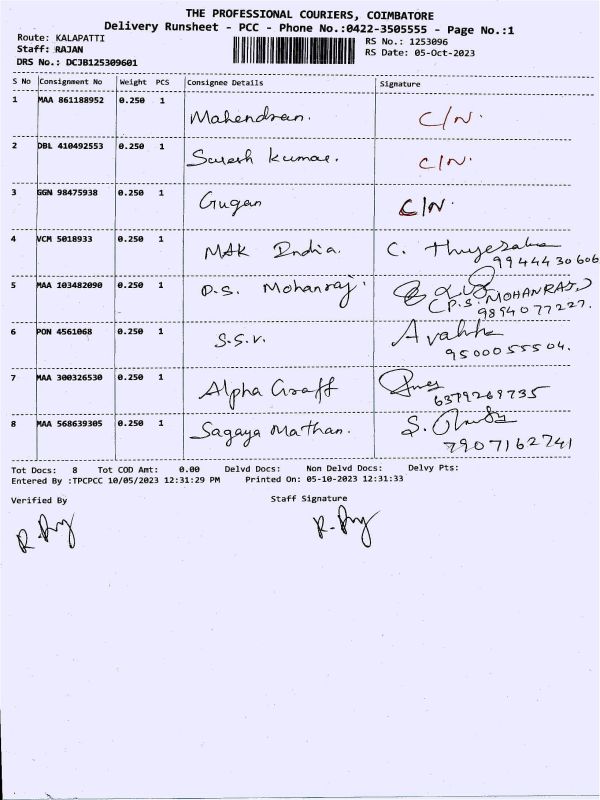 THE PROFESSIONAL COURIERS, COIMBATORE
Delivery Runsheet - PCC - Phone No.:0422-3505555 - Page No.:1
Route: KALAPATTI
Staff: RAJAN
DRS No.: DCJB125309601
RS No.: 1253096
RS Date: 05-Oct-2023
S No Consignment No Weight PCS Consignee Details Signature
1 MAA 861188952 0.250 1 Mahendran. C/N.
2 DBL 410492553 0.250 1 Suresh Kumar. C/N.
3 GGN 98475938 0.250 1 Gugan C/N.
4 VCM 5018933 0.250 1 MAK India. C.
9944430606
5 MAA 103482090 0.250 1 P.S. Mohanraj.
(P.S. MOHANRAJ)
9894077227.
6 PON 4561068 0.250 1 S.S.V.
9500055504.
7 MAA 300326530 0.250 1 Alpha Graff
6379269735
8 MAA 568639305 0.250 1 Sagaya Mathan. S.
7907162741
Tot Docs: 8 Tot COD Amt: 0.00 Delvd Docs: Non Delvd Docs: Delvy Pts:
Entered By :TPCPCC 10/05/2023 12:31:29 PM Printed On: 05-10-2023 12:31:33
Verified By Staff Signature